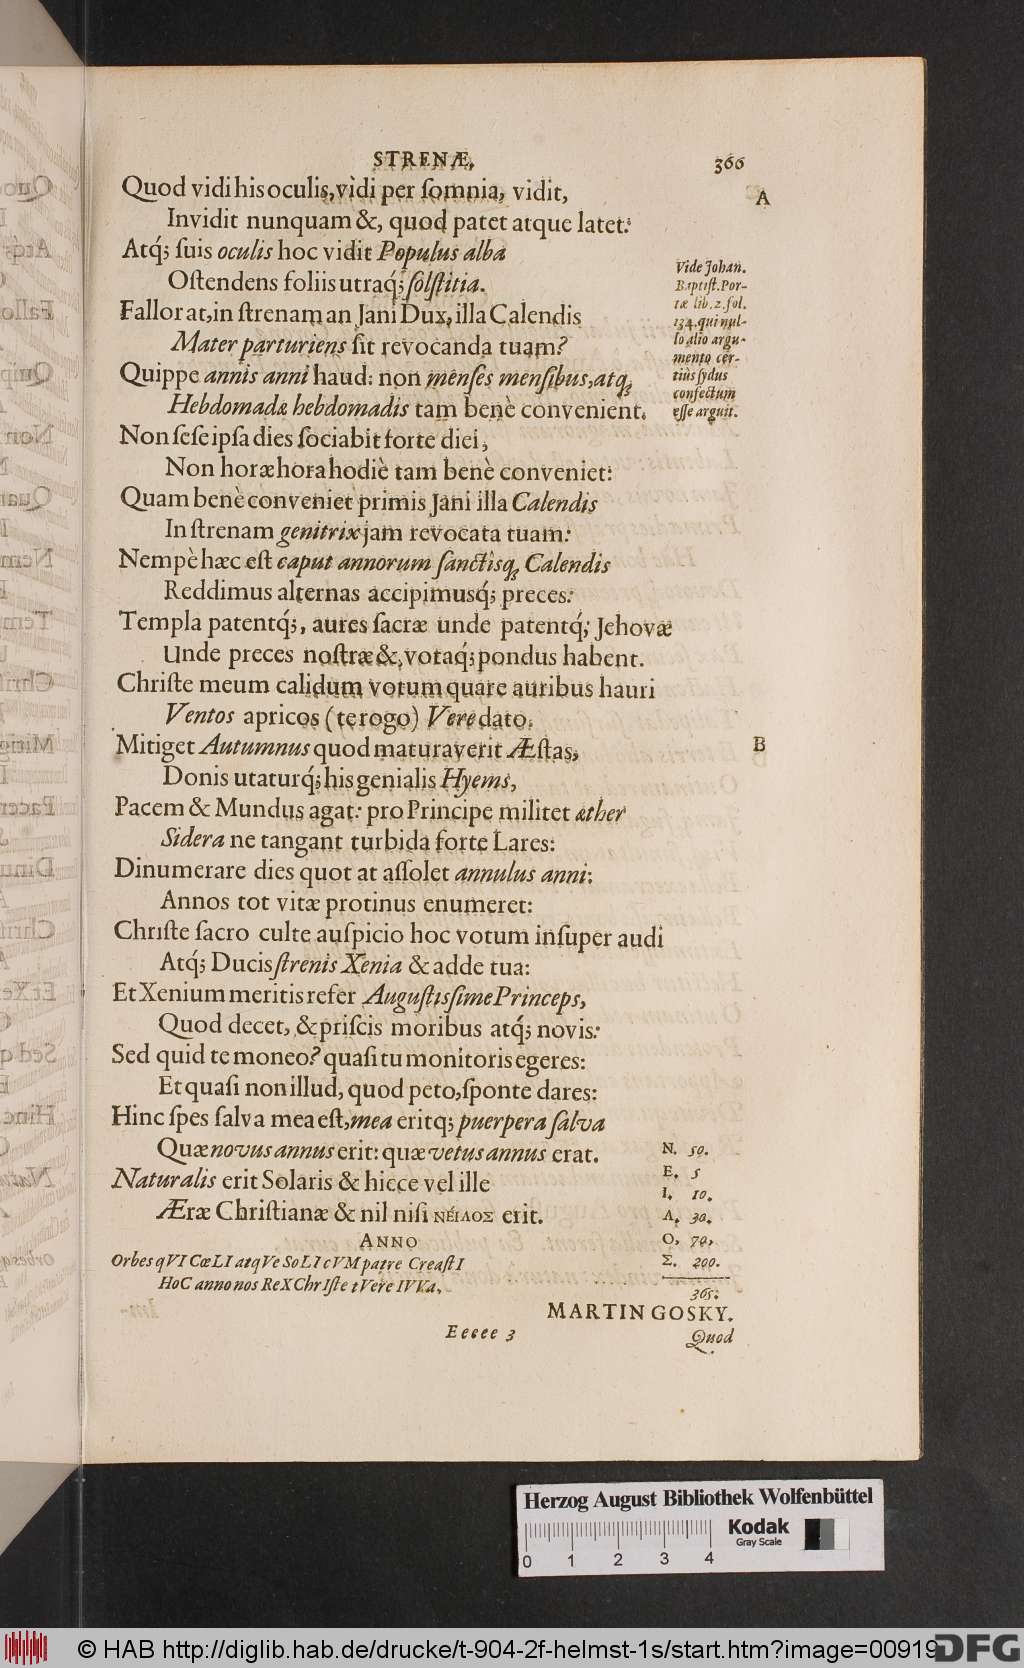 STRENÆ, 366
Quod vidi his oculis, vìdi per ſomnia, vidit,
A
Invidit nunquam &, quod patet atque latet:
Atq́; ſuis oculis hoc vidit Populus alba
Oſtendens foliis utraq́; ſolſtitia.
Vide Johan.
Baptiſt. Por-
tæ lib. 2. fol.
134. qui nul-
lo alio argu-
mento cer-
tiùs ſydus
confectum
eſſe arguit.
Fallor at, in ſtrenam an Jani Dux, illa Calendis
Mater parturiens ſit revocanda tuam?
Quippe annis anni haud: non menſes menſibus, atq;
Hebdomadæ hebdomadis tam benè convenient.
Non ſeſe ipſa dies ſociabit forte diei,
Non horæ hora hodiè tam benè conveniet:
Quam benè conveniet primis Jani illa Calendis
In ſtrenam genitrix jam revocata tuam:
Nempè hæc eſt caput annorum ſanctisq; Calendis
Reddimus alternas accipimusq́; preces:
Templa patentq́;, aures ſacræ unde patentq́; Jehovæ
Unde preces noſtræ &, votaq́; pondus habent.
Chriſte meum calidum votum quare auribus hauri
Ventos apricos (te rogo) Vere dato.
Mitiget Autumnus quod maturaverit Æſtas,
B
Donis utaturq́; his genialis Hyems,
Pacem & Mundus agat: pro Principe militet æther
Sidera ne tangant turbida forte Lares:
Dinumerare dies quot at aſſolet annulus anni:
Annos tot vitæ protinus enumeret:
Chriſte ſacro culte auſpicio hoc votum inſuper audi
Atq́; Ducis ſtrenis Xenia & adde tua:
Et Xenium meritis refer Auguſtisſime Princeps,
Quod decet, & priſcis moribus atq́; novis:
Sed quid te moneo? quaſi tu monitoris egeres:
Et quaſi non illud, quod peto, ſponte dares:
Hinc ſpes ſalva mea eſt, mea eritq; puerpera ſalva
Quæ novus annus erit: quæ vetus annus erat.
Naturalis erit Solaris & hicce vel ille
Æræ Chriſtianæ & nil niſi ΝΕΊΛΟΣ erit.
N. 50.
E. 5
I. 10.
Λ. 30.
O. 70.
Σ. 200.
365.
ANNO
Orbes qVI CœLI atqVe SoLI cVM patre CreaſtI
HoC anno nos ReX ChrIſte tVere IVVa.
MARTIN GOSKY.
Eeeee 3
Quod
Herzog August Bibliothek Wolfenbüttel
Kodak
Gray Scale
0 1 2 3 4
© HAB http://diglib.hab.de/drucke/t-904-2f-helmst-1s/start.htm?image=00919
DFG